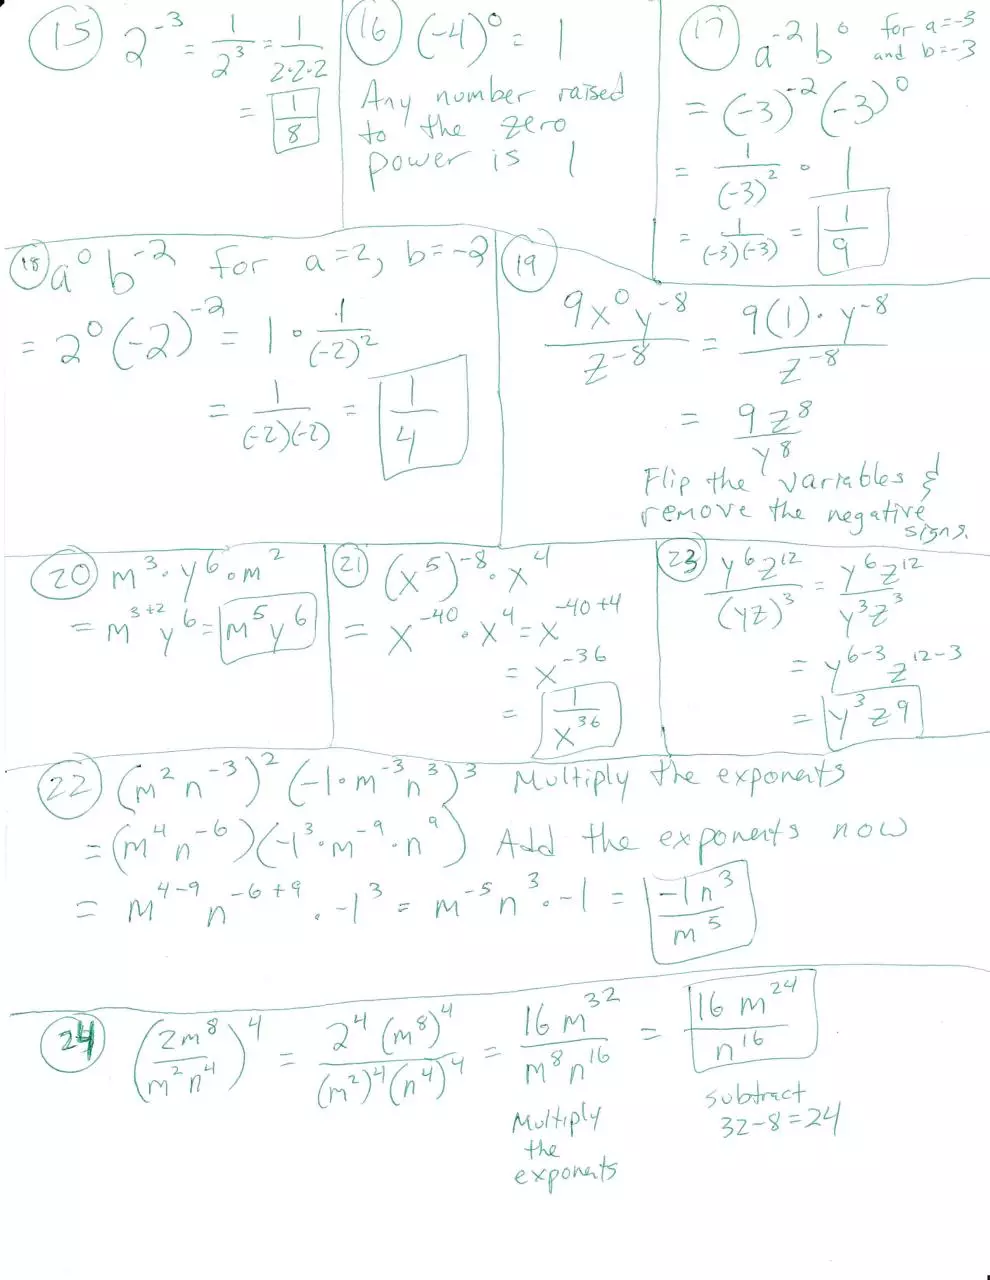 15 2⁻³ = 1/2³ = 1/2·2·2
= 1/8
16 (-4)⁰ = 1
Any number raised
to the zero
power is 1
17 a⁻²b⁰ for a=-3
and b=-3
= (-3)⁻² (-3)⁰
= 1/(-3)² · 1
= 1/(-3)(-3) = 1/9
18 a⁰ b⁻² for a=2, b=-2
= 2⁰(-2)⁻² = 1 · 1/(-2)²
= 1/(-2)(-2) = 1/4
19
9x⁰y⁻⁸/z⁻⁸ = 9(1)·y⁻⁸/z⁻⁸
= 9z⁸/y⁸
Flip the variables &
remove the negative
signs.
20 m³·y⁶·m²
= m³⁺²y⁶ = m⁵y⁶
21 (x⁵)⁻⁸·x⁴
= x⁻⁴⁰·x⁴ = x⁻⁴⁰⁺⁴
= x⁻³⁶
= 1/x³⁶
23 y⁶z¹²/(yz)³ = y⁶z¹²/y³z³
= y⁶⁻³z¹²⁻³
= y³z⁹
22 (m²n⁻³)² (-1·m⁻³n³)³ Multiply the exponents
= (m⁴n⁻⁶)(-1³·m⁻⁹·n⁹) Add the exponents now
= m⁴⁻⁹n⁻⁶⁺⁹·-1³ = m⁻⁵n³·-1 = -1n³/m⁵
24 (2m⁸/m²n⁴)⁴ = 2⁴(m⁸)⁴/(m²)⁴(n⁴)⁴ = 16m³²/m⁸n¹⁶ = 16m²⁴/n¹⁶
Multiply
the
exponents
subtract
32-8=24